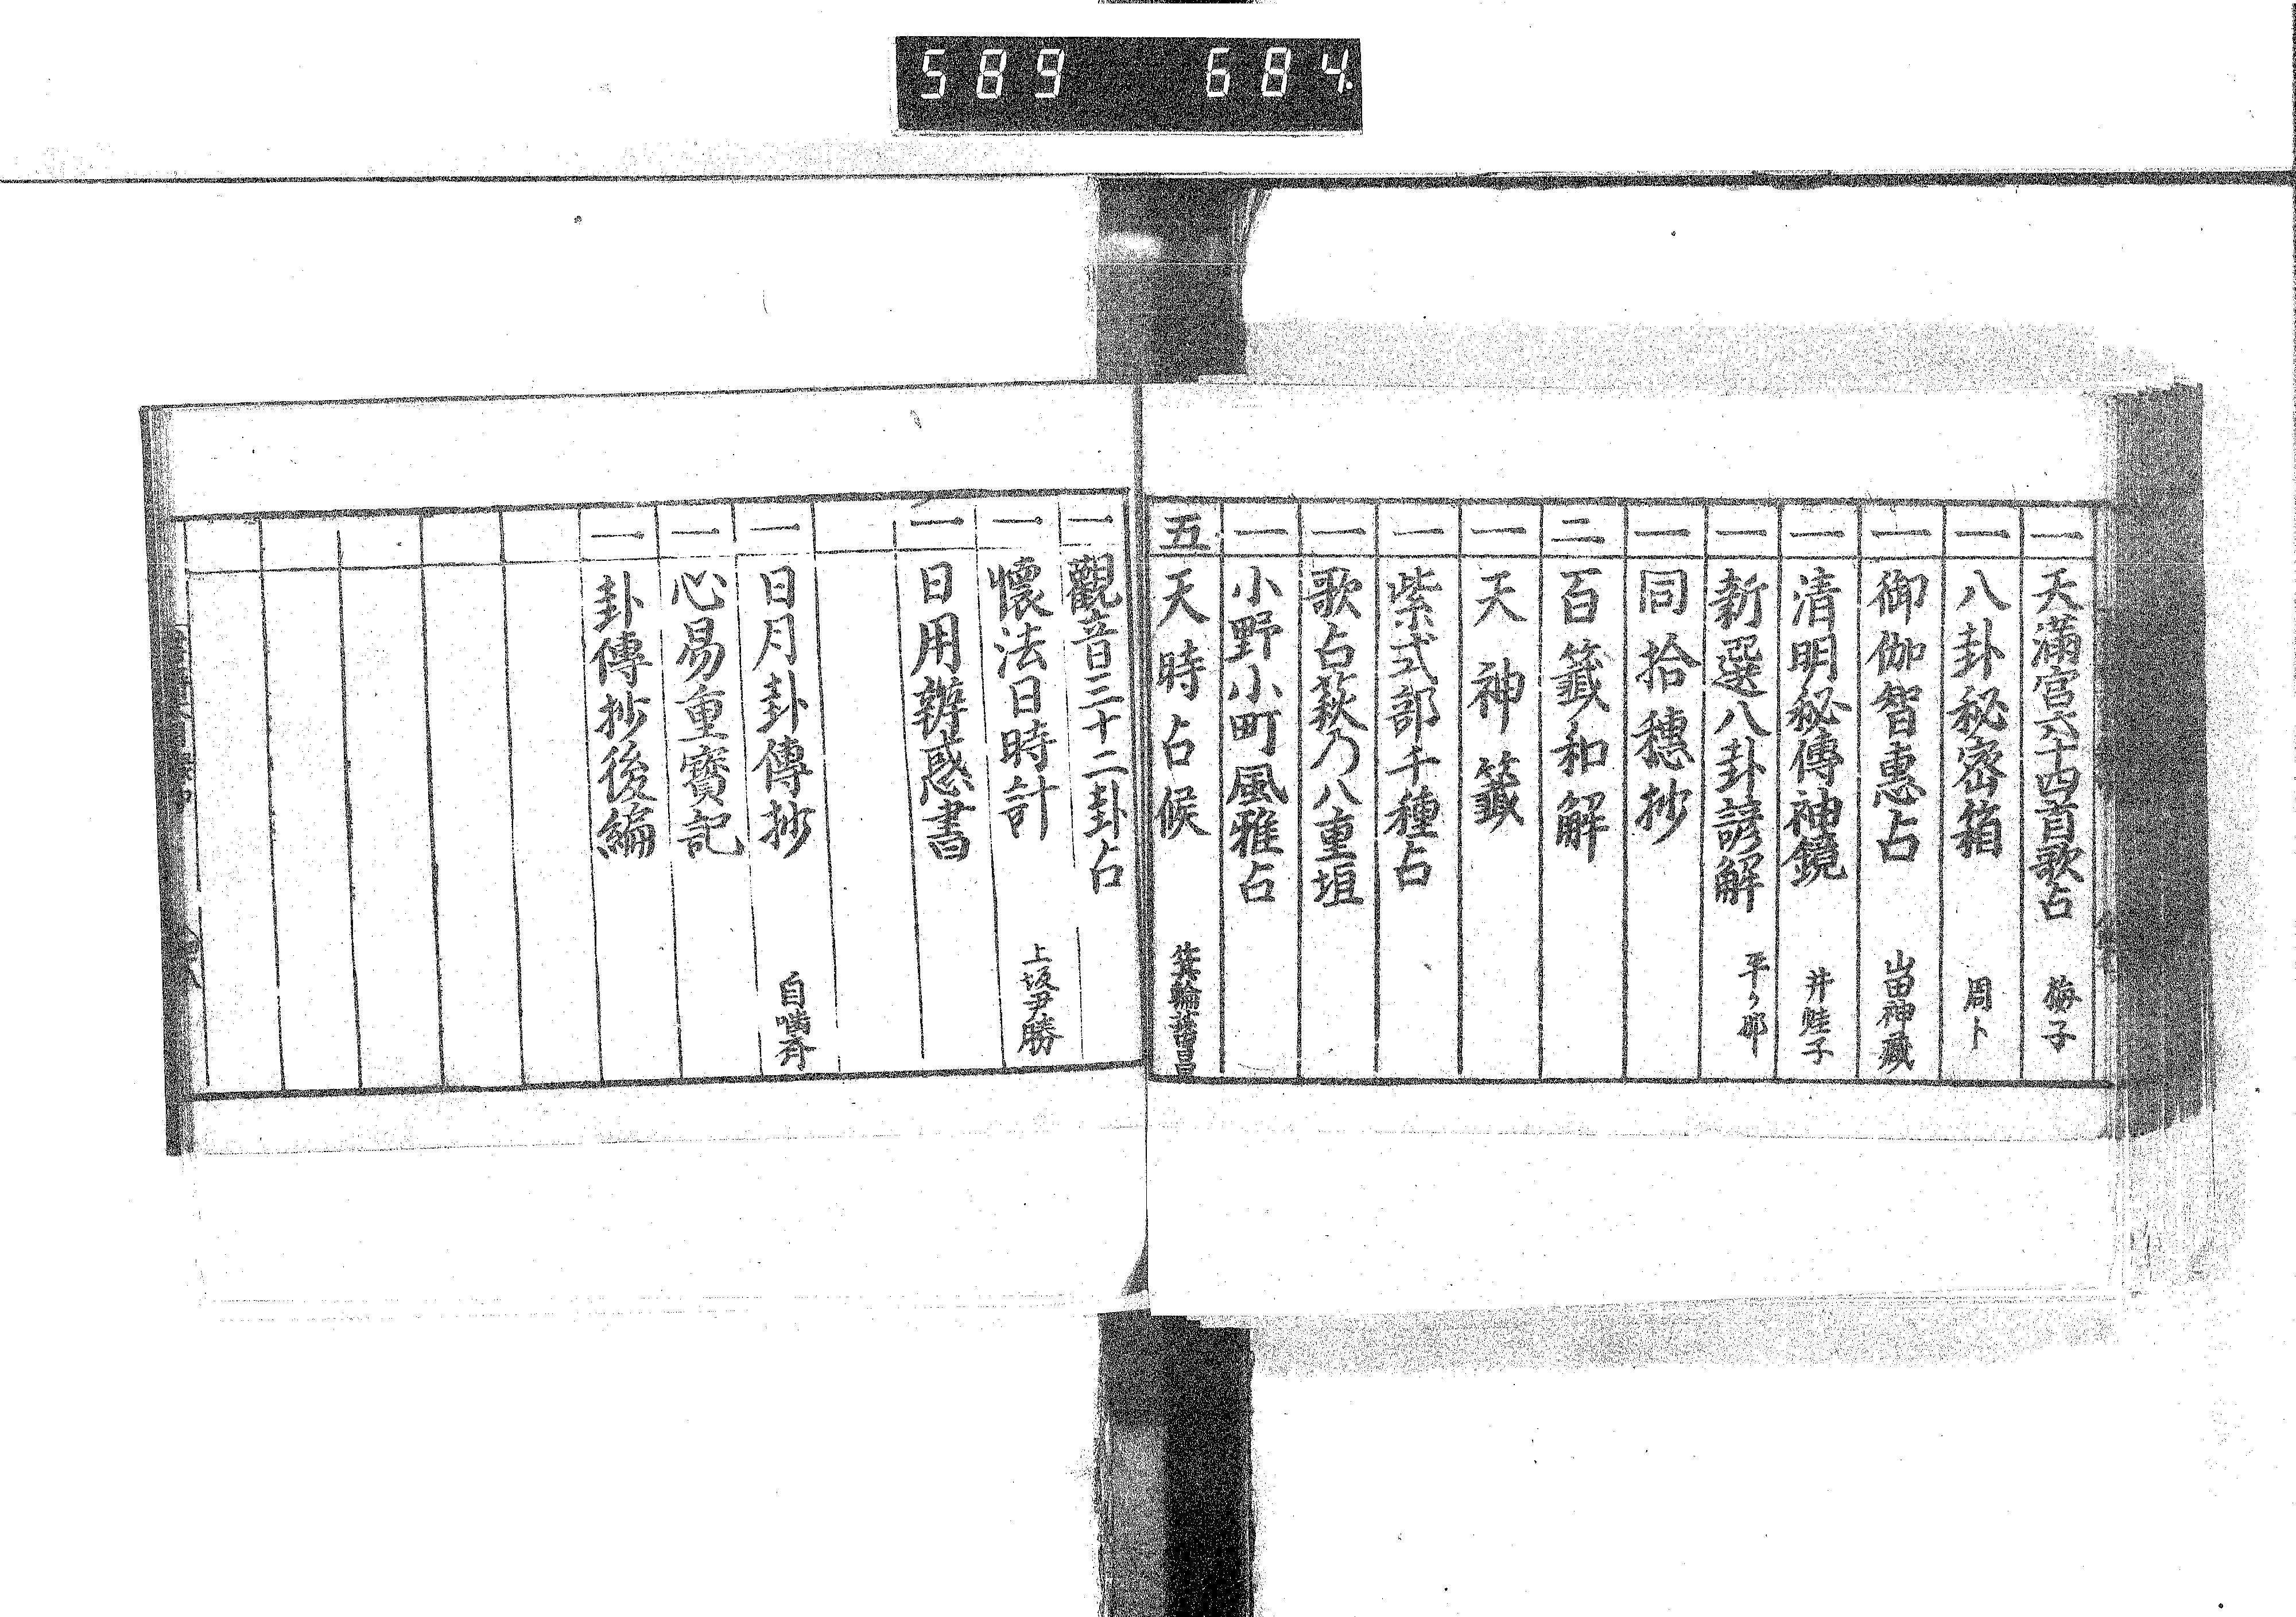 589 684
一 天滿宮六十四首歌占 梅子
一 八卦秘密箱 周卜
一 御伽智惠占 山田神蔵
一 清明秘傳袖鏡 井蛙子
一 新選八卦諺解
一 同拾穗抄
二 百籤和解
一 天神籤
一 紫式部千種占
一 歌占萩乃八重垣
一 小野小町風雅占
五 天時占候
一 觀音三十二卦占
一 懷法日時計 上坂尹勝
一 日用辨惑書
一 日月卦傳抄
一 心易重寶記
一 卦傳抄後編